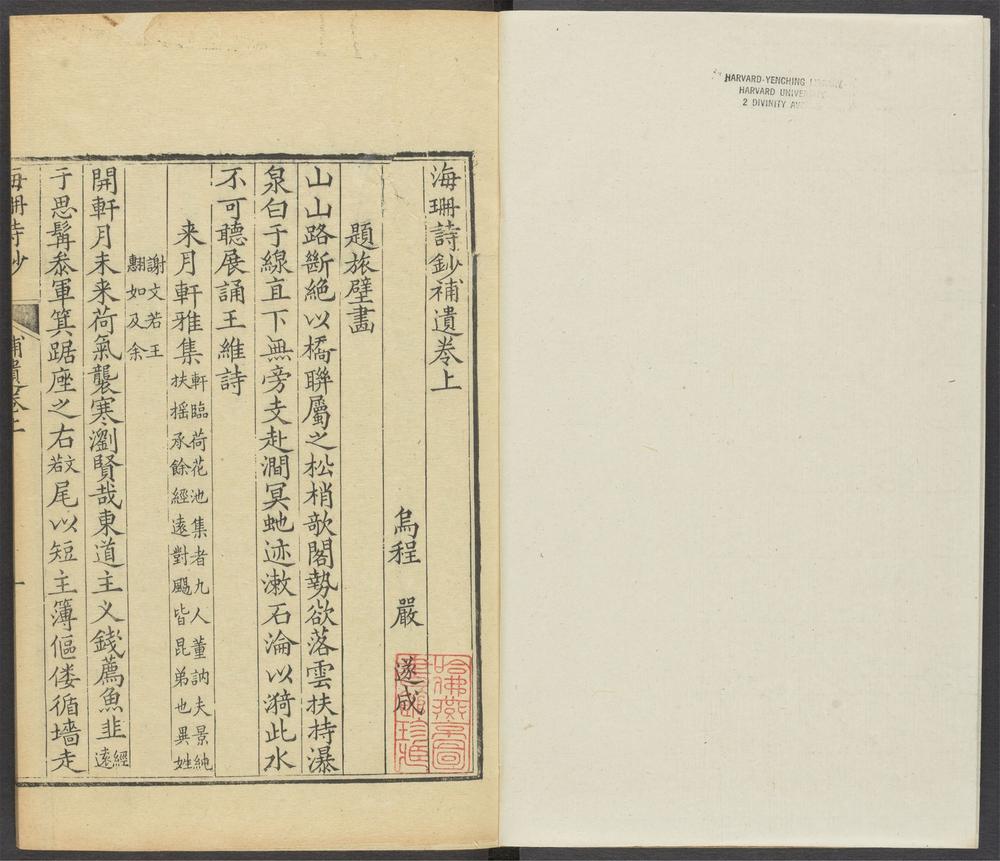 HARVARD-YENCHING
HARVARD
2 DIVINITY
海珊詩鈔補遺卷上
烏程 嚴 遂成
題旅壁畵
山山路斷絶以橋聨屬之松梢歌閣勢欲落雲扶持瀑
泉白于線直下無旁支赴澗冥虵迹潄石淪以漪此水
不可聽展誦王維詩
来月軒雅集軒臨荷花池集者九人董訥夫景純
扶摇承餘經遠對颺皆昆弟也異姓
謝文若王
翽如及余
開軒月未来荷氣襲寒瀏賢哉東道主义錢薦魚韭經
遠
于思髯叅軍箕踞座之右文
若尾以短主簿傴僂循墻走
海珊詩鈔
補遺卷上
一